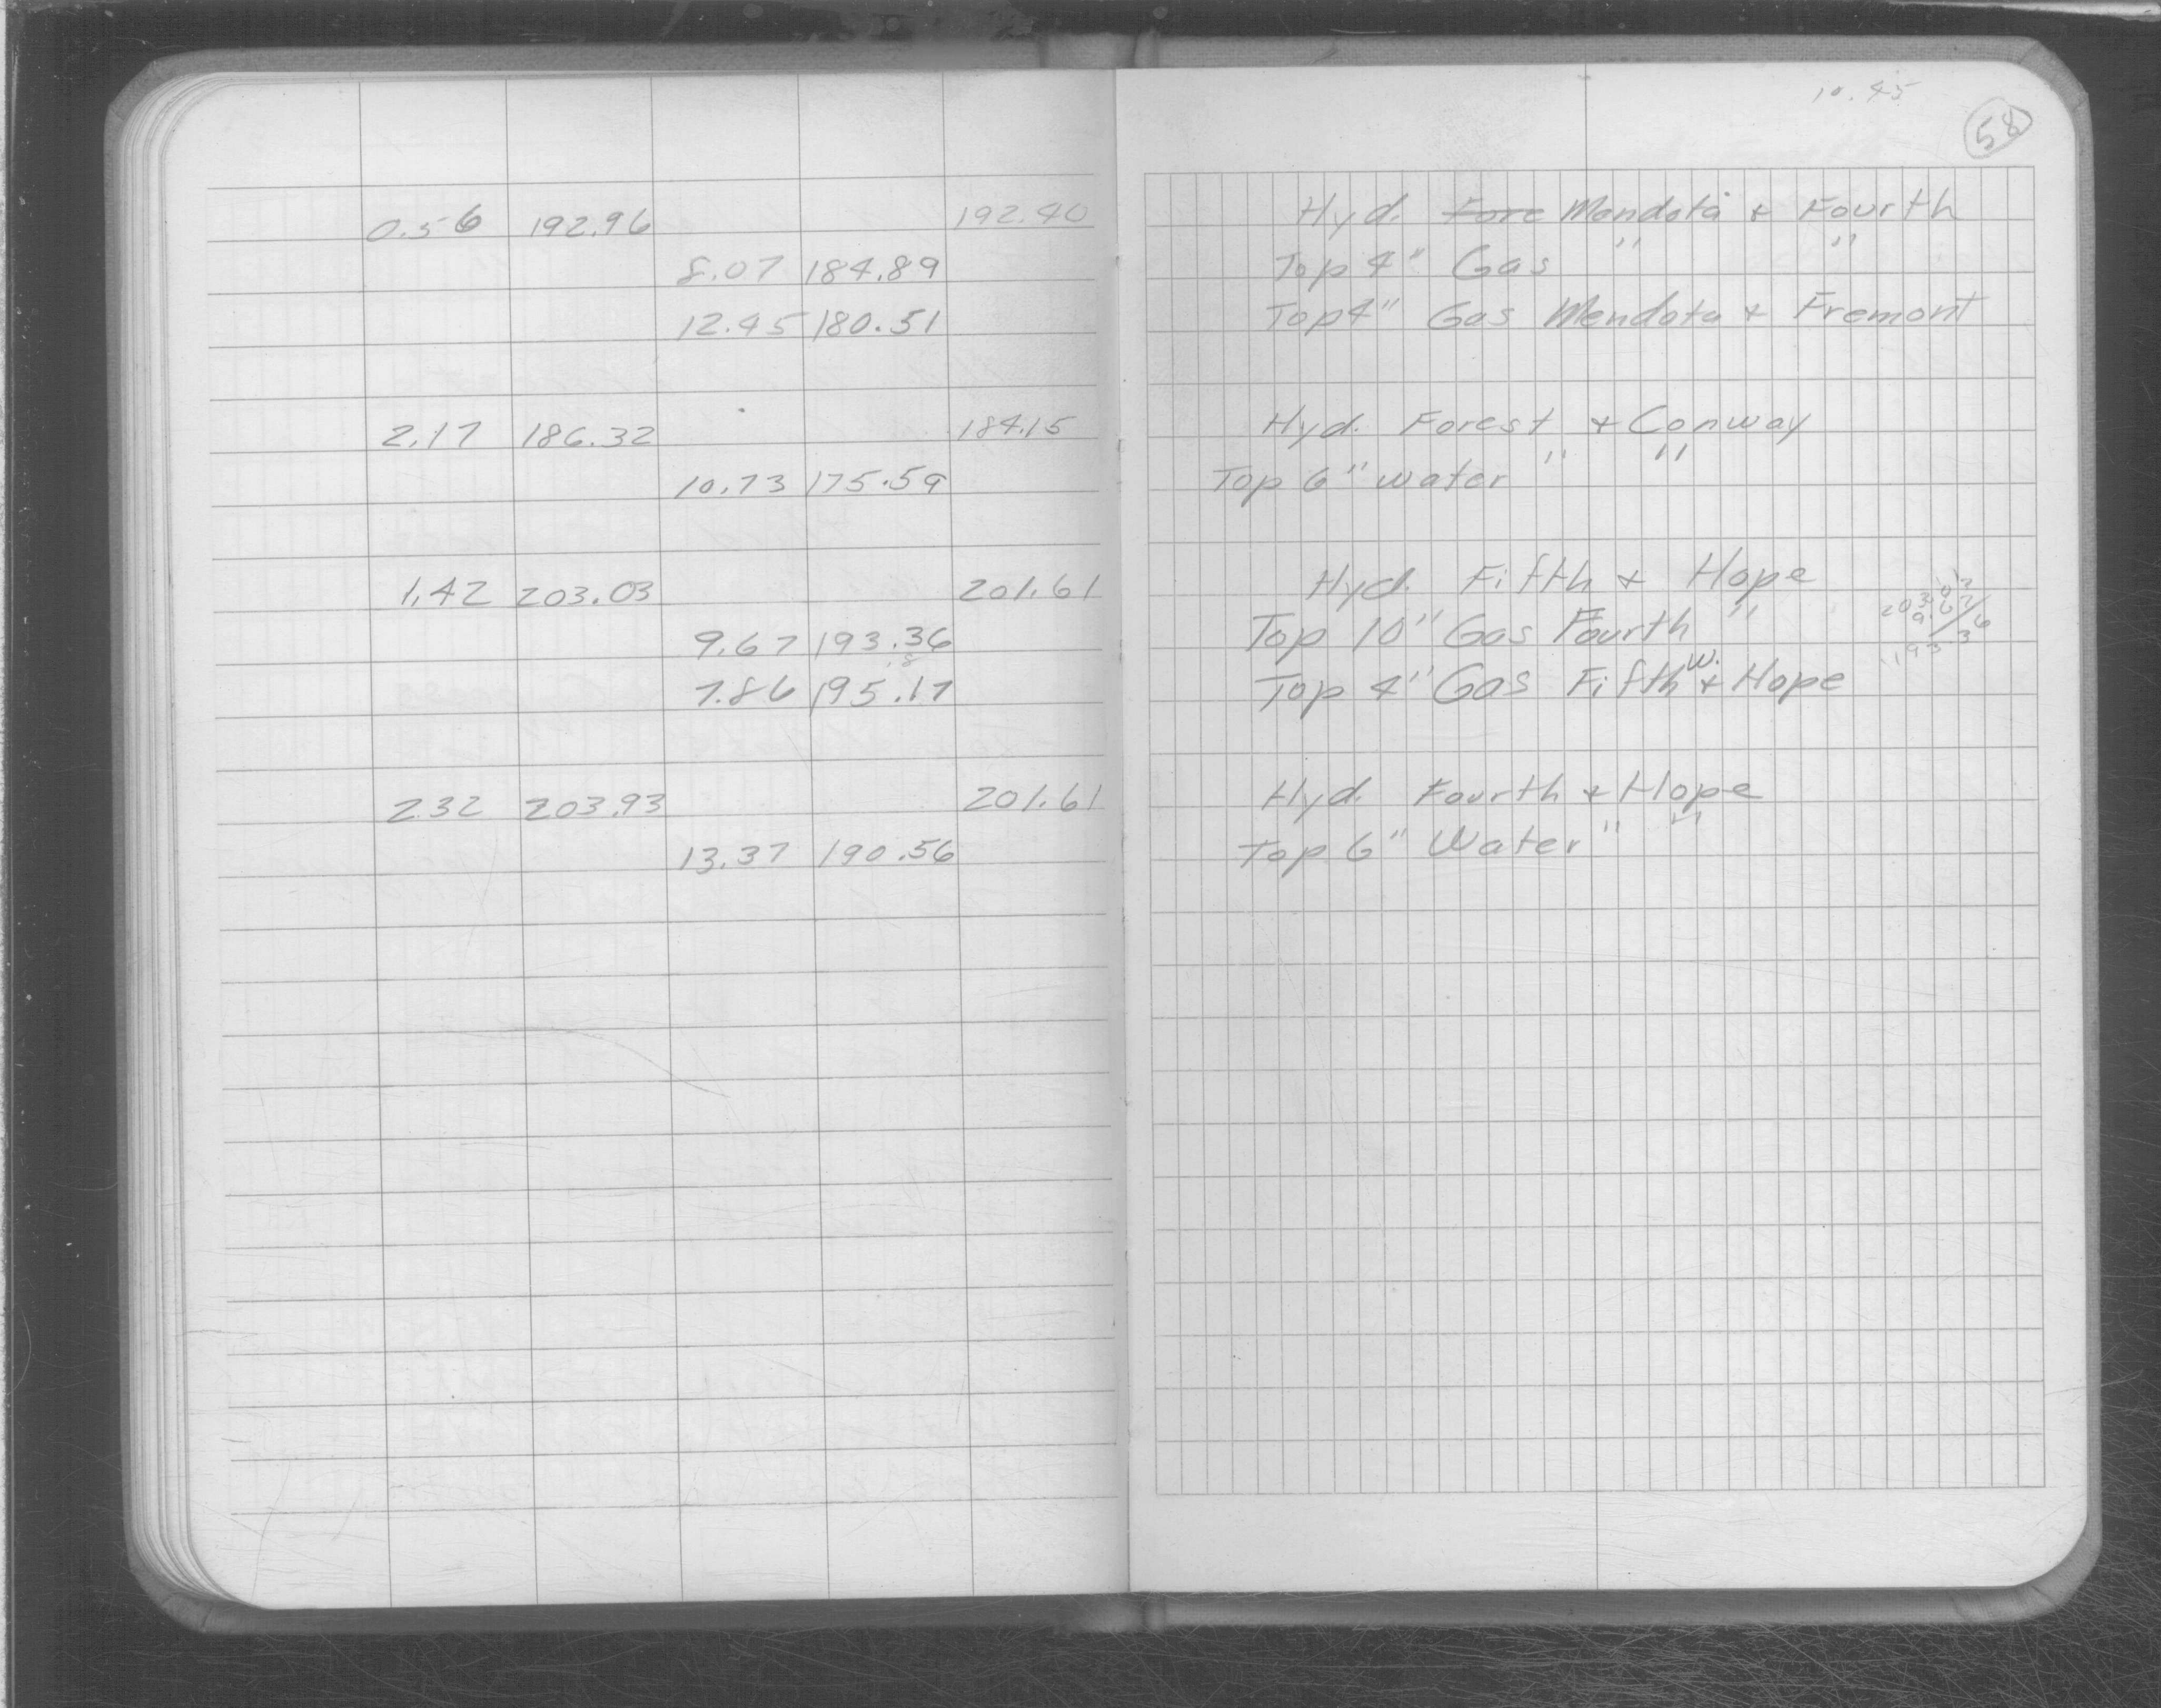 10.45
58
0.56 192.96 192.40 Hyd. Fore Mendota + Fourth
8.07 184.89 Top 4" Gas " "
12.45 180.51 Top 4" Gas Mendota + Fremont
2.17 186.32 184.15 Hyd. Forest + Conway
10.73 175.59 Top 6" water " "
1.42 203.03 201.61 Hyd. Fifth + Hope
9.67 193.36 Top 10" Gas Fourth "
7.86 195.17 Top 4" Gas Fifth W. + Hope
2.32 203.93 201.61 Hyd. Fourth + Hope
13.37 190.56 Top 6" Water " "